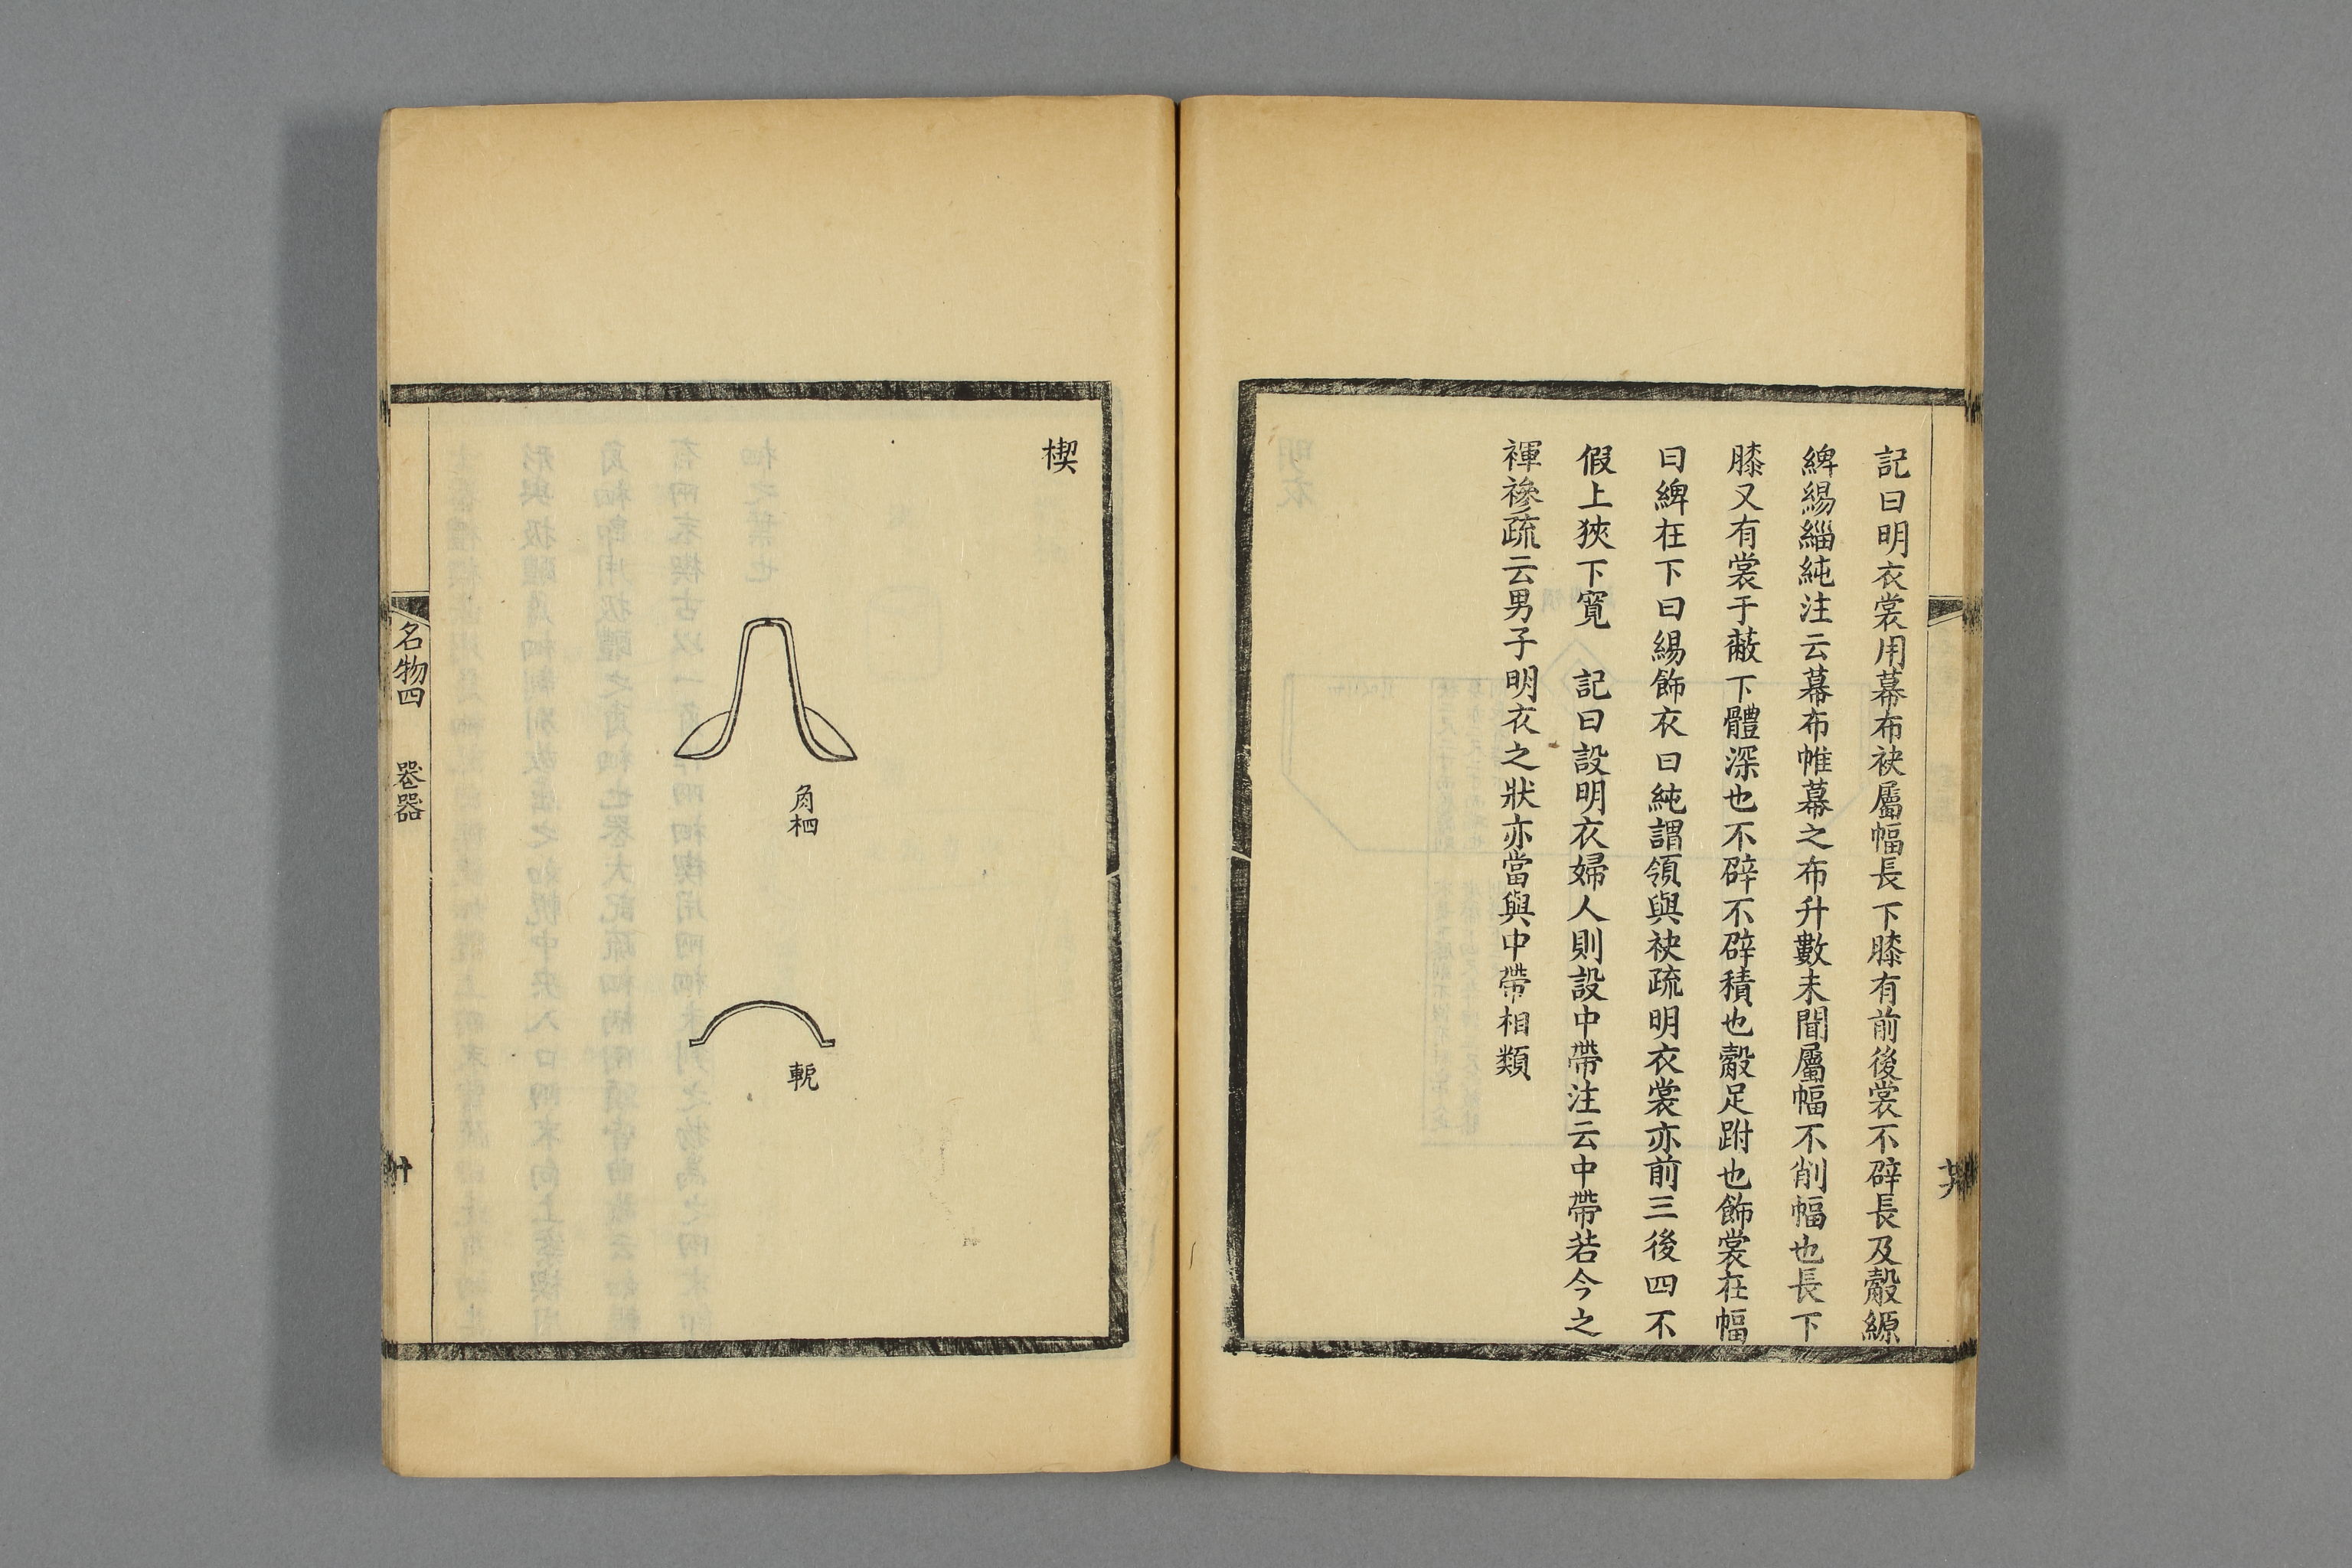 記曰明衣裳用幕布袂屬幅長下膝有前後裳不辟長及觳縓
綼緆緇純注云幕布帷幕之布升數未聞屬幅不削幅也長下
膝又有裳于蔽下體深也不辟不辟積也觳足跗也飾裳在幅
曰綼在下曰緆飾衣曰純謂領與袂疏明衣裳亦前三後四不
假上狹下寬　記曰設明衣婦人則設中帶注云中帶若今之
褌襂疏云男子明衣之狀亦當與中帶相類
楔
角柶
軶
名物四　喪器